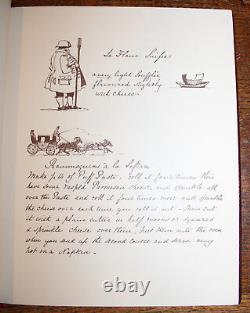 La Flour Suifse
a very light Soufflée
flavoured slightly
with cheese.
Ramequins à la Sefton
Make ½ lb of Puff Paste. roll it four times then
have some rasped Parmesan cheese and sprinkle all
over the Paste and roll it four times more and sprinkle
the cheese over each time you roll it out. Then cut
it with a plain cutter in half moons or squares
& sprinkle cheese over them, put them into the oven
when you send up the second course and serve very
hot on a Napkin.
© ebay.com